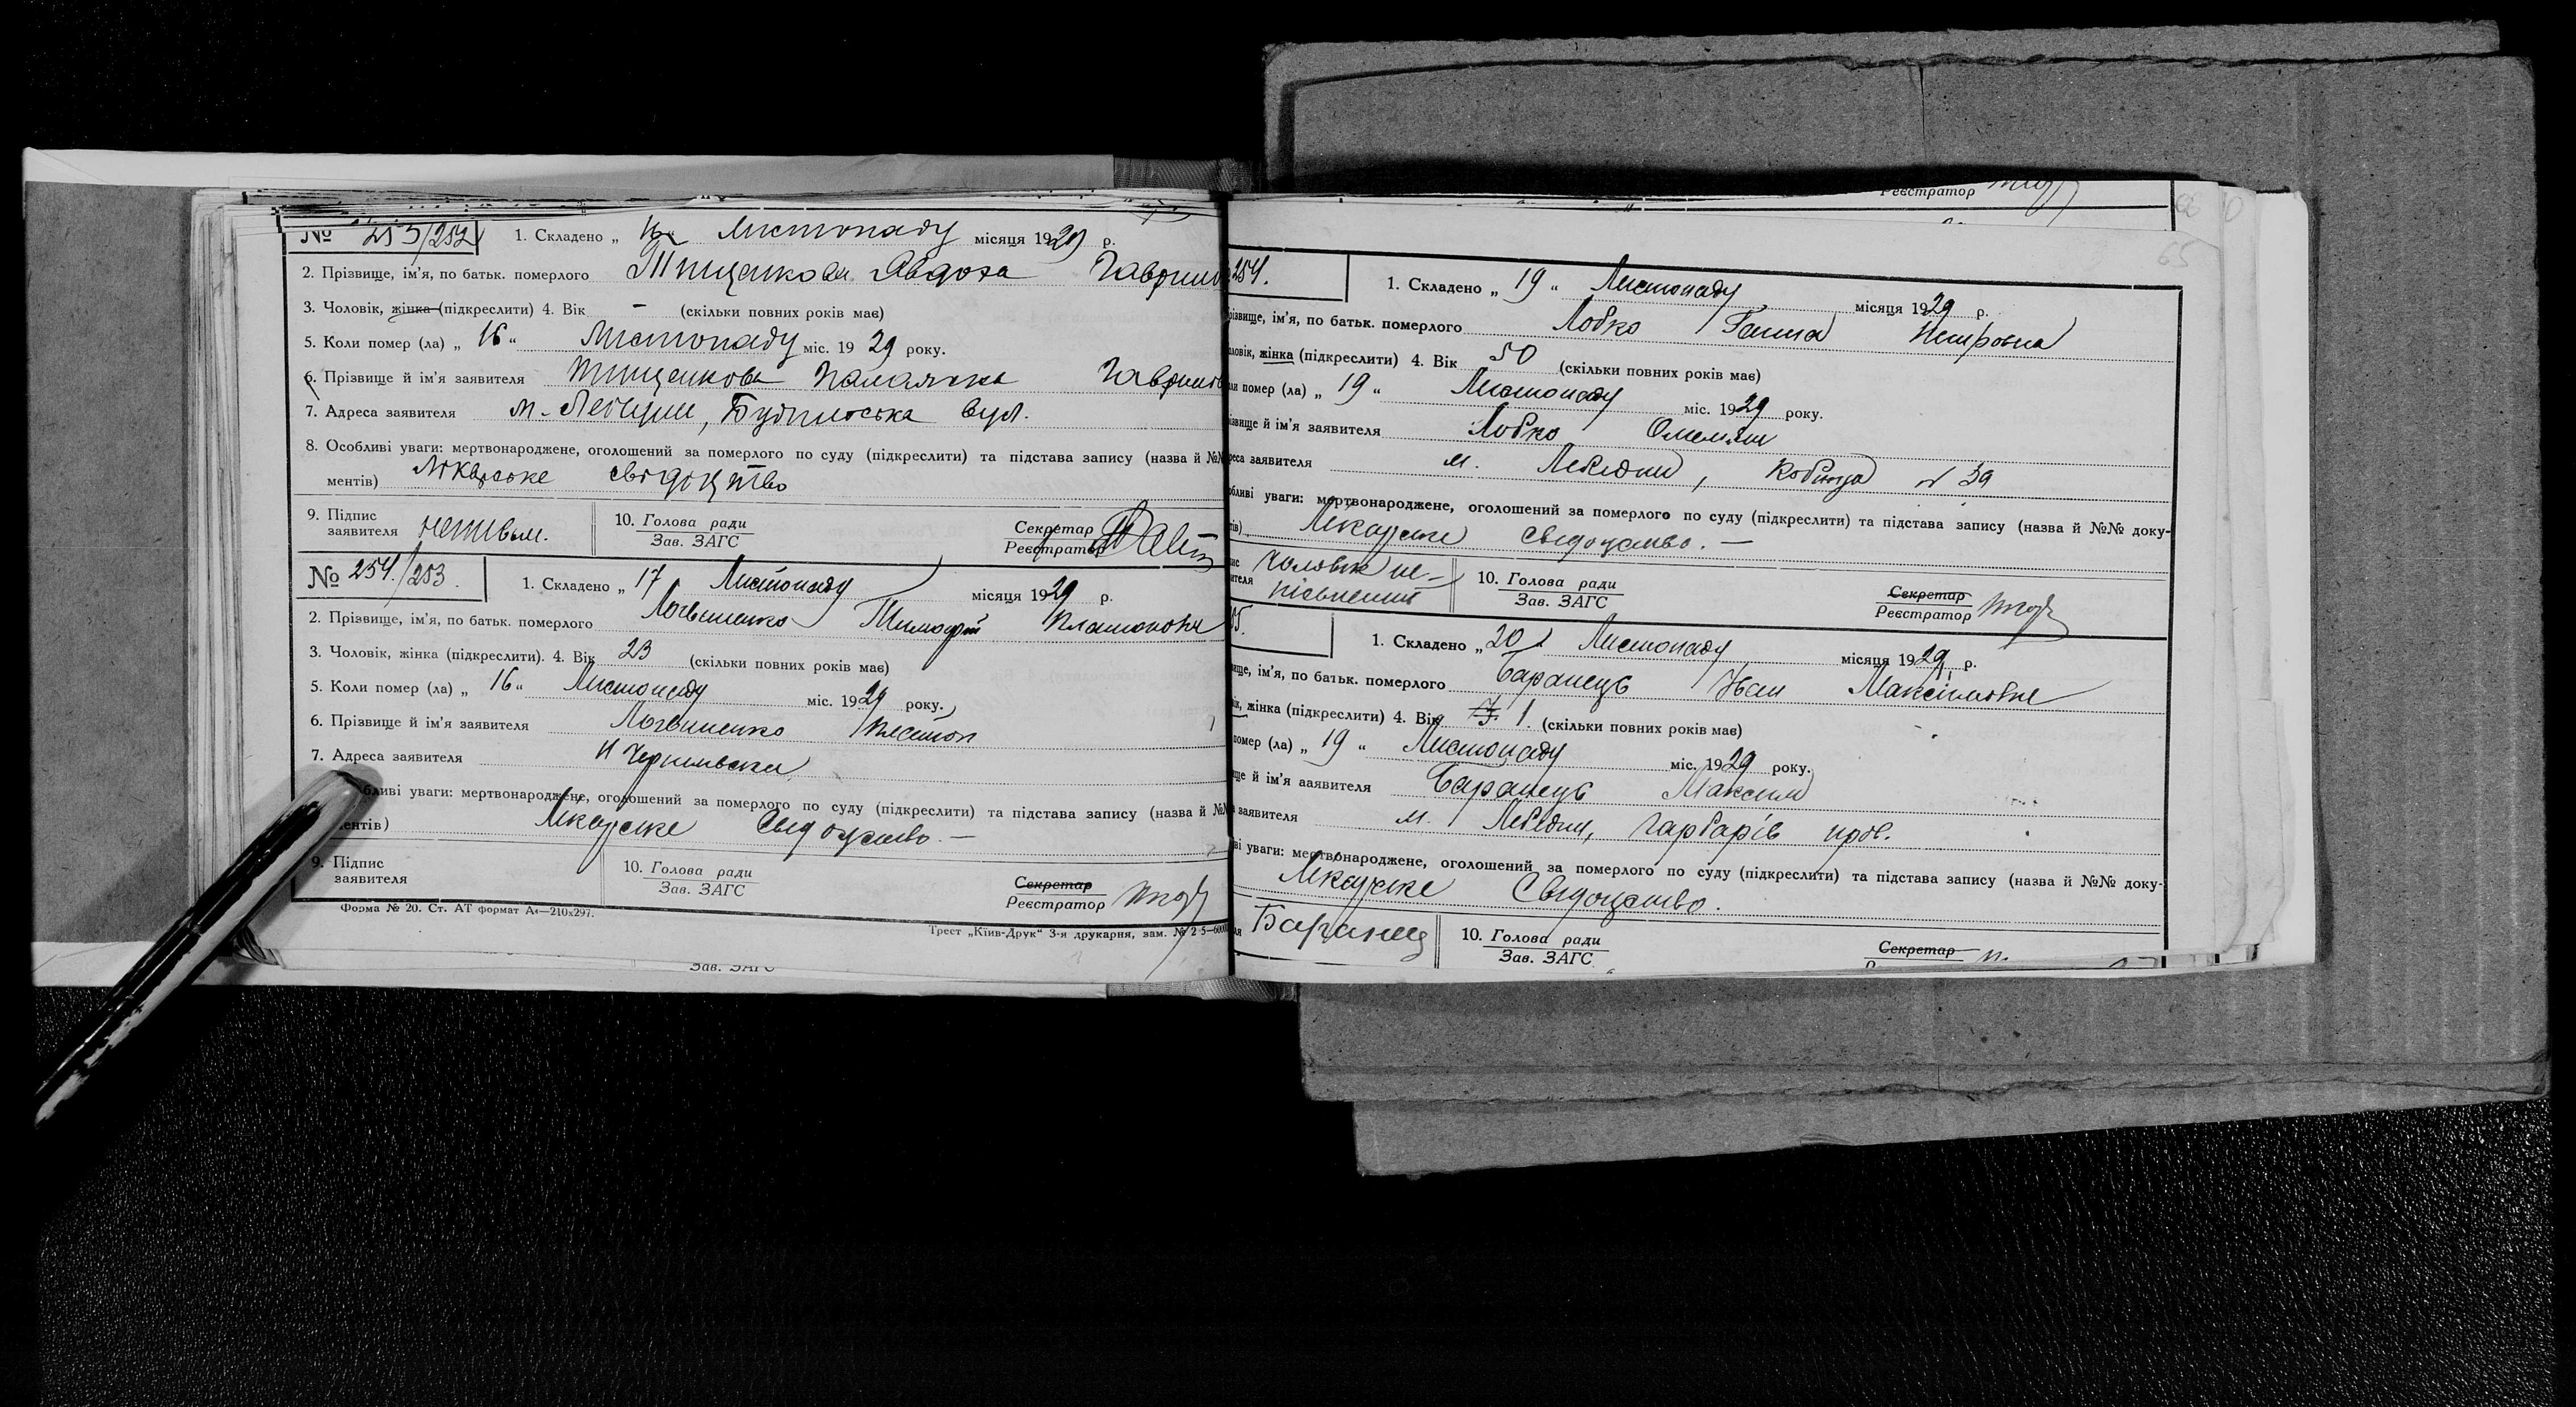 Реєстратор
№ 253/252 1. Складено „ 16 “ Листопаду місяця 1929 р.
2. Прізвище, ім'я, по батьк. померлого Тищенкова Явдоха Гаврилов
3. Чоловік, жінка (підкреслити) 4. Вік – (скільки повних років має)
5. Коли помер (ла) „ 16 “ Листопаду міс. 1929 року.
6. Прізвище й ім'я заявителя Тищенкова Палажка Гаврилов
7. Адреса заявителя м. Лебедин, вул.
8. Особливі уваги: мертвонароджене, оголошений за померлого по суду (підкреслити) та підстава запису (назва й №№
ментів) Лікарське свідоцтво
9. Підпис
заявителя
10. Голова ради
Зав. ЗАГС
Секретар
Реєстратор
№ 254./253. 1. Складено „ 17 Листопаду місяця 1929 р.
2. Прізвище, ім'я, по батьк. померлого Логвиненко Тимофій Платонович
3. Чоловік, жінка (підкреслити). 4. Вік 23 (скільки повних років має)
5. Коли помер (ла) „ 16 “ Листопаду міс. 1929 року.
6. Прізвище й ім'я заявителя Логвиненко Платон
7. Адреса заявителя
бливі уваги: мертвонароджене, оголошений за померлого по суду (підкреслити) та підстава запису (назва й №№
ментів) Лікарське Свідоцтво –
9. Підпис
заявителя
10. Голова ради
Зав. ЗАГС
Секретар
Реєстратор
Форма № 20. Ст. АТ формат А4—210х297.
Трест „Київ-Друк“ 3-я друкарня, зам. № 2 5—6000
Зав. ЗАГС
65
254. 1. Складено „ 19 “ Листопаду місяця 1929 р.
різвище, ім'я, по батьк. померлого Лобко Ганна Петровна
ловік, жінка (підкреслити) 4. Вік 50 (скільки повних років має)
ли помер (ла) „ 19 “ Листопаду міс. 1929 року.
ізвище й ім'я заявителя Лобко Омелян
реса заявителя м. Лебедин, Кобижча № 39
обливі уваги: мертвонароджене, оголошений за померлого по суду (підкреслити) та підстава запису (назва й №№ доку-
тів) Лікарське Свідоцтво. –
ис
ителя
Чоловік не-
пісьменний
10. Голова ради
Зав. ЗАГС
Секретар
Реєстратор
55. 1. Складено „ 20 “ Листопаду місяця 1929 р.
ище, ім'я, по батьк. померлого Баранець Іван Максімович
ік, жінка (підкреслити) 4. Вік 1. (скільки повних років має)
помер (ла) „ 19 “ Листопаду міс. 1929 року.
ще й ім'я аявителя Баранець Максим
а заявителя м. Лебедин, Гарбарів пров.
ві уваги: мертвонароджене, оголошений за померлого по суду (підкреслити) та підстава запису (назва й №№ доку-
Лікарське Свідоцтво.
ля
Баранец
10. Голова ради
Зав. ЗАГС
Секретар